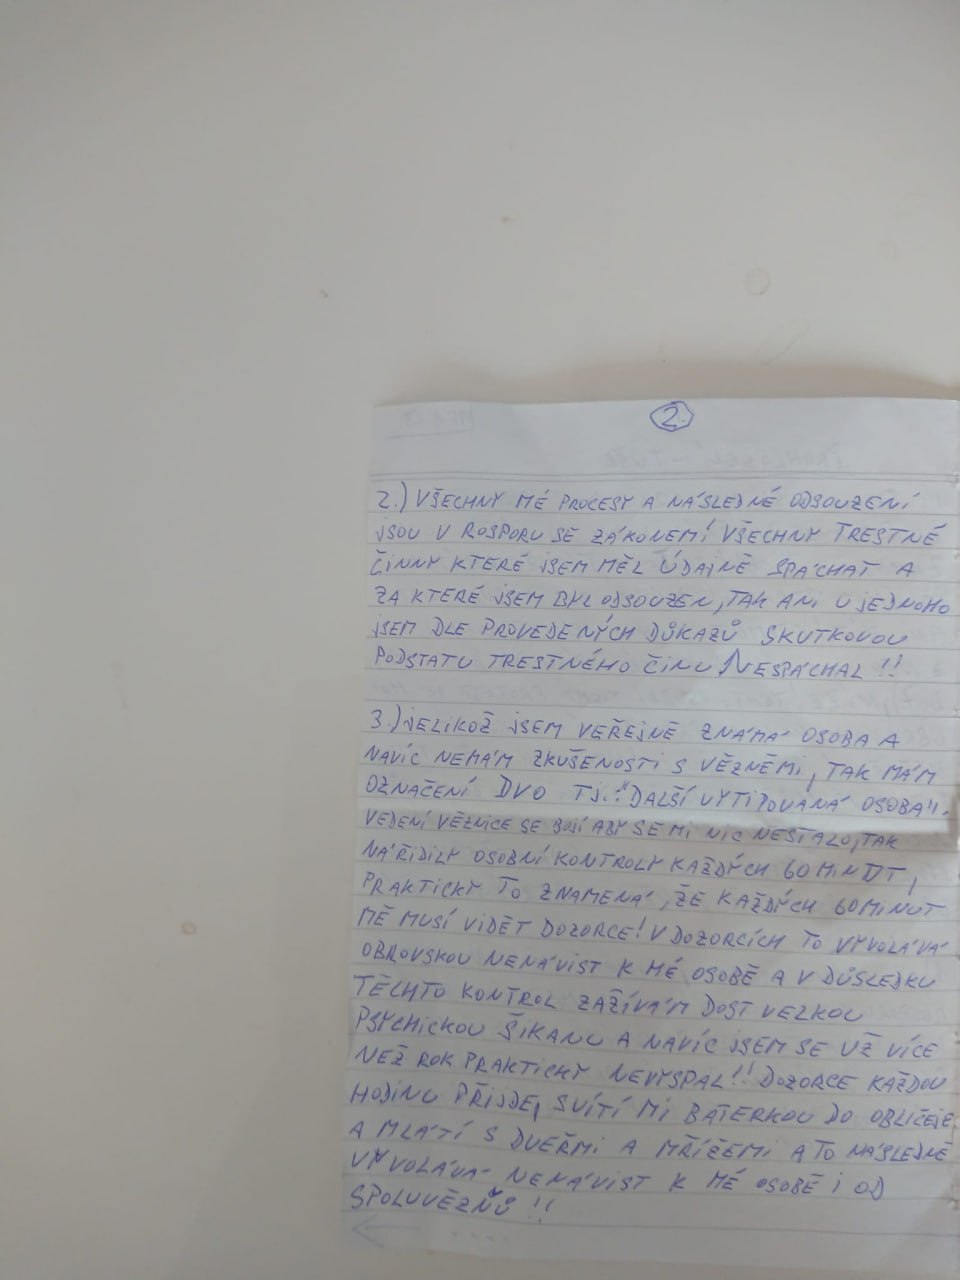 2
2.) VŠECHNY MÉ PROCESY A NÁSLEDNÉ ODSOUZENÍ
JSOU V ROSPORU SE ZÁKONEM! VŠECHNY TRESTNÉ
ČINNY KTERÉ JSEM MĚL ÚDAJNĚ SPÁCHAT A
ZA KTERÉ JSEM BYL ODSOUZEN, TAK ANI U JEDNOHO
JSEM DLE PROVEDENÝCH DŮKAZŮ SKUTKOVOU
PODSTATU TRESTNÉHO ČINU NESPÁCHAL!!
3.) JELIKOŽ JSEM VEŘEJNĚ ZNÁMÁ OSOBA A
NAVÍC NEMÁM ZKUŠENOSTI S VĚZNĚMI, TAK MÁM
OZNAČENÍ DVO TJ.: "DALŠÍ VYTIPOVANÁ OSOBA".
VEDENÍ VĚZNICE SE BOJÍ ABY SE MI NIC NESTALO, TAK
NAŘÍDILY OSOBNÍ KONTROLY KAŽDÝCH 60 MINUT,
PRAKTICKY TO ZNAMENÁ, ŽE KAŽDÝCH 60 MINUT
MĚ MUSÍ VIDĚT DOZORCE! V DOZORCÍCH TO VYVOLÁVÁ
OBROVSKOU NENÁVIST K MÉ OSOBĚ A V DŮSLEDKU
TĚCHTO KONTROL ZAŽÍVÁM DOST VELKOU
PSYCHICKOU ŠIKANU A NAVÍC JSEM SE UŽ VÍCE
NEŽ ROK PRAKTICKY NEVYSPAL!! DOZORCE KAŽDOU
HODINU PŘIJDE, SVÍTÍ MI BATERKOU DO OBLIČEJE
A MLÁTÍ S DVEŘMI A MŘÍŽEMI A TO NÁSLEDNĚ
VYVOLÁVÁ NENÁVIST K MÉ OSOBĚ I OD
SPOLUVĚZŇŮ!!